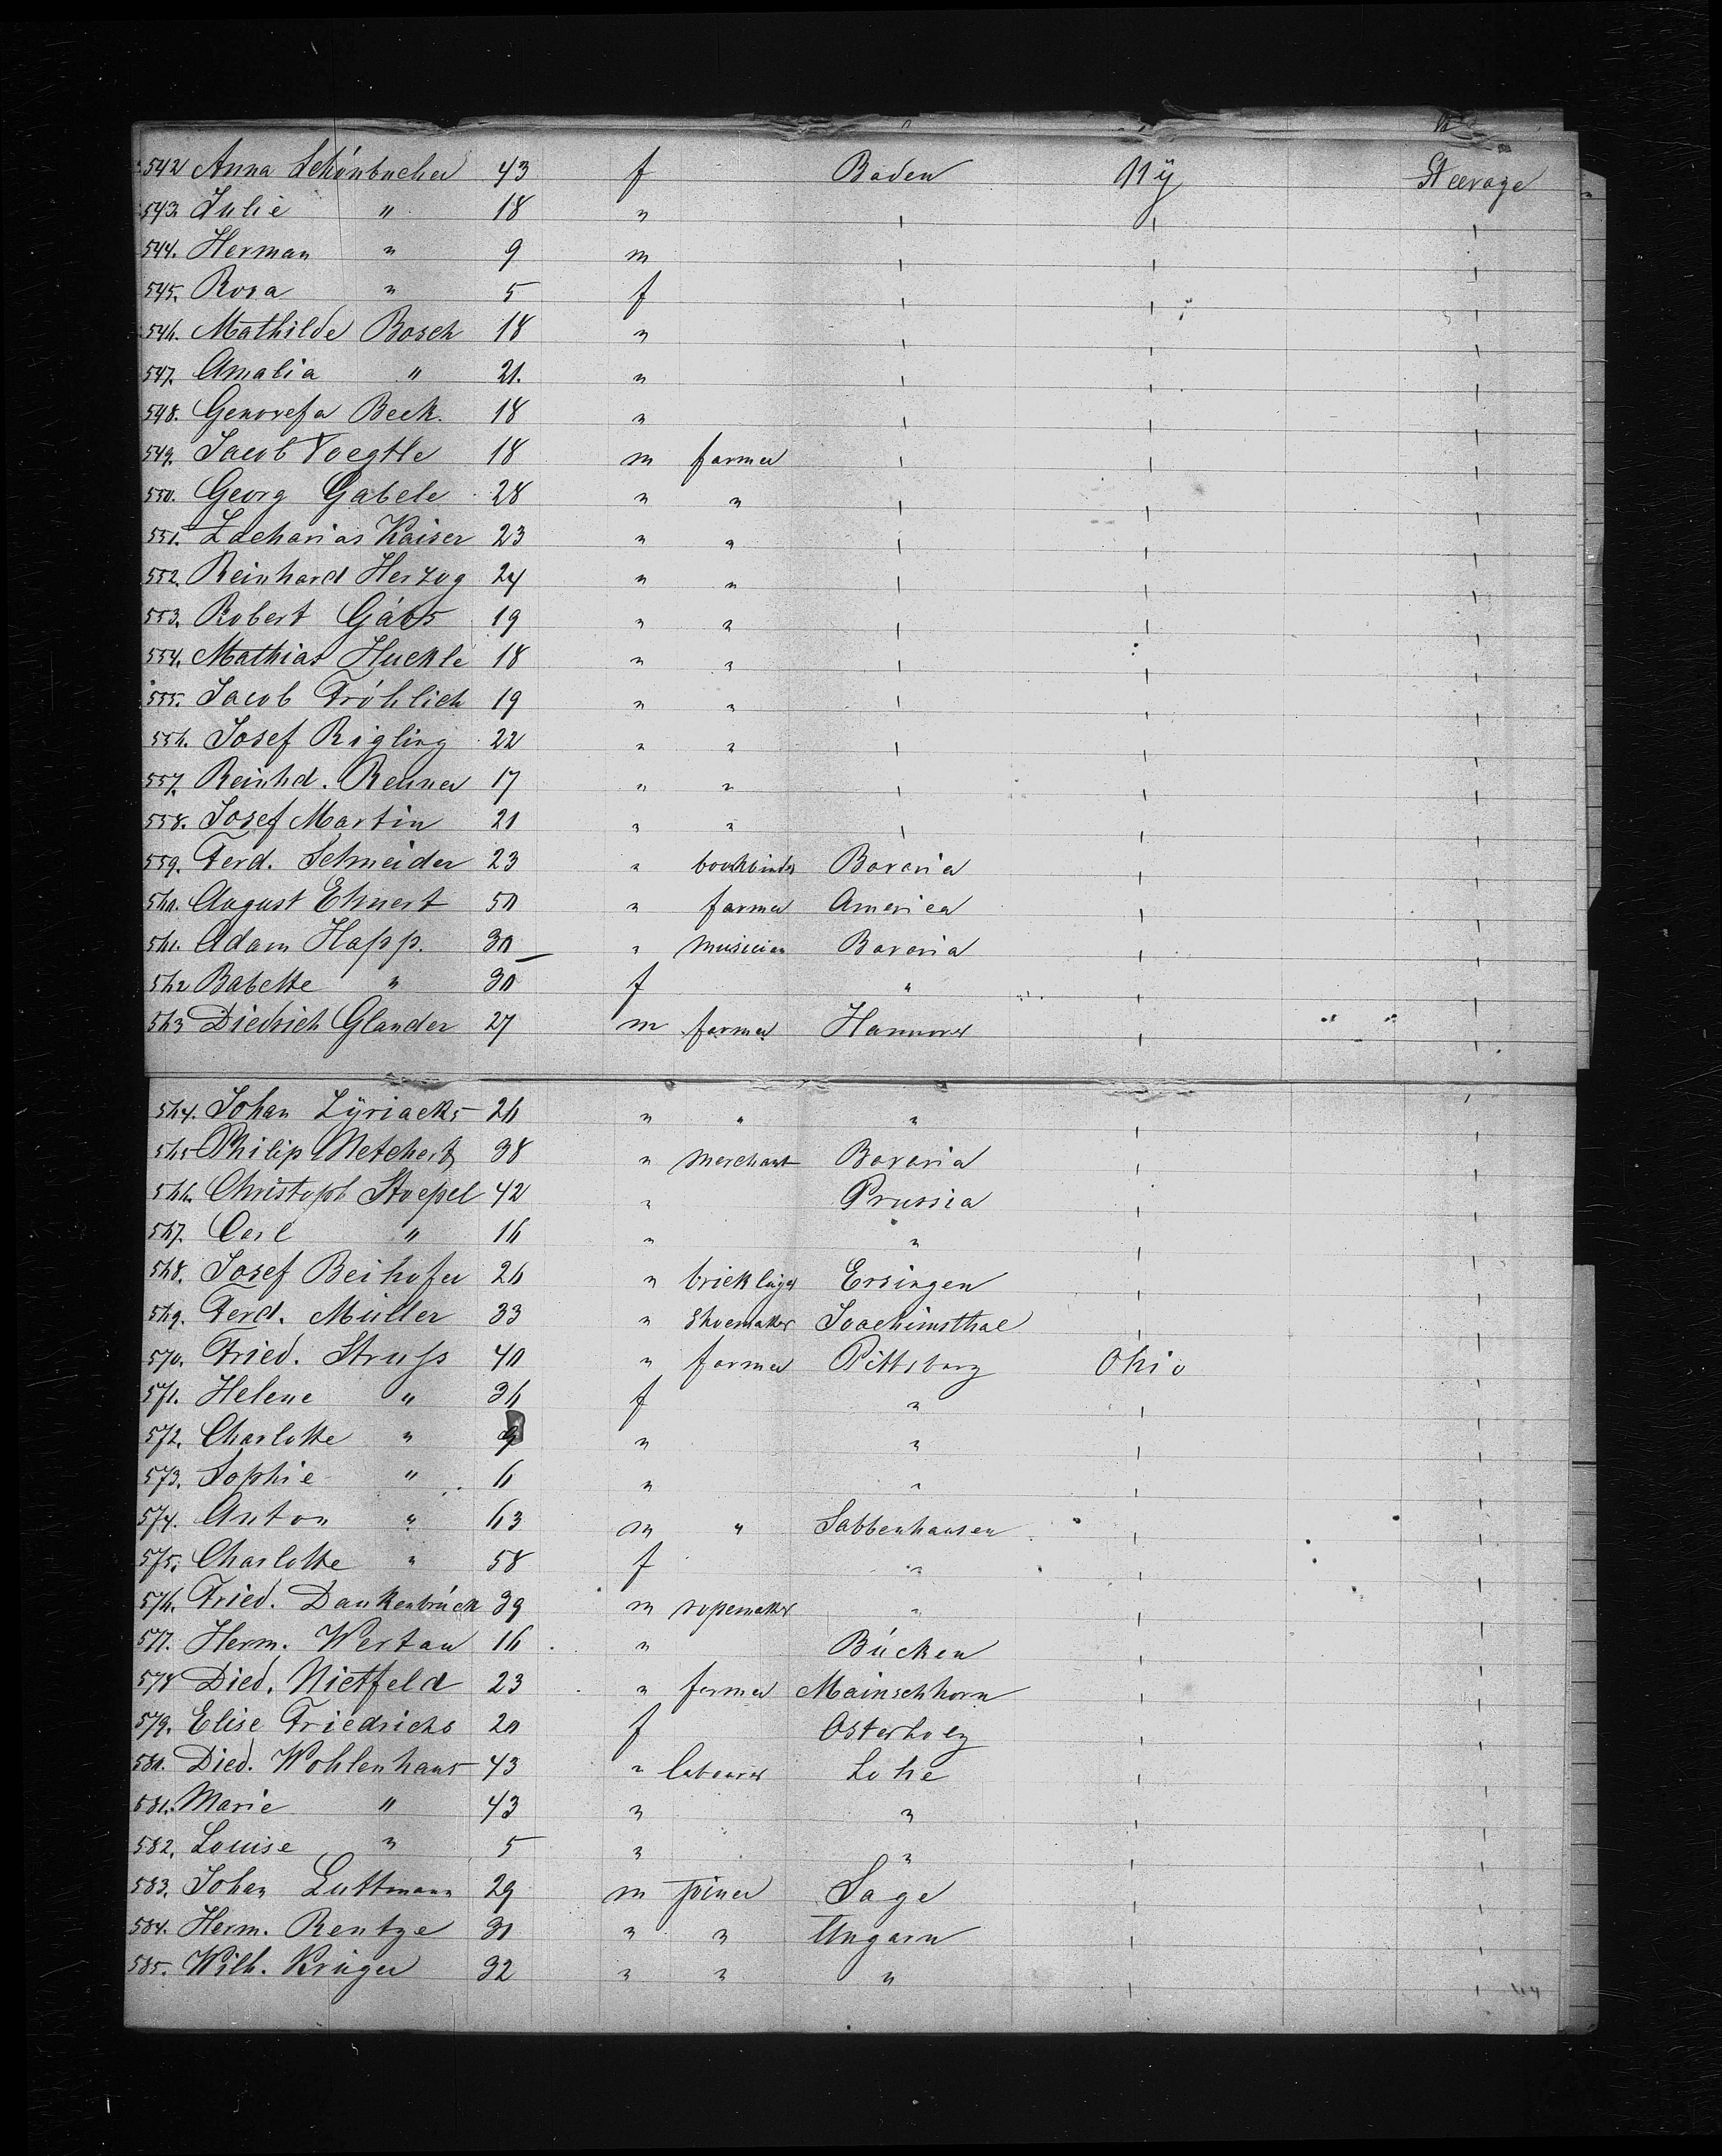 542 Anna Schönbucher 43 f Baden NY Steerage
543. Julie " 18 " ' ' '
544. Herman " 9 m ' ' '
545. Rosa " 5 f ' ' '
546. Mathilde Bosch 18 " ' ' '
547. Amalia " 21. " ' ' '
548. Genovefa Beck. 18 " ' ' '
549. Jacob Voegtle 18 m farmer ' ' '
550. Georg Gabele 28 " " ' ' '
551. Zacharias Kaiser 23 " " ' ' '
552. Reinhard Herzog 24 " " ' ' '
553. Robert Gäbs 19 " " ' ' '
554. Mathias Huckle 18 " " ' ' '
555. Jacob Fröhlich 19 " " ' ' '
556. Josef Rigling 22 " " ' ' '
557. Reinhd. Renner 17 " " ' ' '
558. Josef Martin 21 " " ' ' '
559. Ferd. Schneider 23 " bookbinder Bavaria ' '
560. August Ehnert 50 " farmer America ' '
561. Adam Happ. 30 " musician Bavaria ' '
562 Babette " 30 f " ' '
563 Diedrich Glander 27 m farmer Hannover ' '
564. Johan Zÿriacks 26 " " " ' '
565 Philip Metchert 38 " merchant Bavaria ' '
566. Christoph Stoepel 42 " Prussia ' '
567. Carl " 16 " " ' '
568. Josef Beihofer 26 " bricklayer Ersingen ' '
569. Ferd. Müller 33 " Shoemaker Joachimsthal ' '
570. Fried. Struss 40 " farmer Pittsburg Ohio '
571. Helene " 36 f " ' '
572. Charlotte " 9 " " ' '
573. Sophie " 6 " " ' '
574. Anton " 63 m " Sabbenhausen ' '
575. Charlotte " 58 f " ' '
576. Fried. Dankenbrück 39 m ropemaker " ' '
577. Herm. Wertau 16 " Bücken ' '
578 Died. Nietfeld 23 " farmer Mainschhorn ' '
579. Elise Friedrichs 20 f Osterholz ' '
580. Died. Wohlenhaus 43 " labourer Lohe ' '
581. Marie " 43 " " ' '
582. Louise " 5 " " ' '
583. Johan Luttmann 29 m joiner Sage ' '
584. Herm. Rentze 31 " " Ungarn ' '
585. Wilh. Krüger 32 " " " ' '